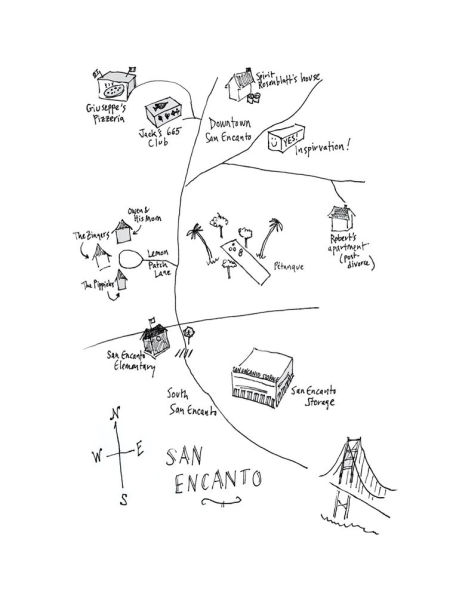 Giuseppe's
Pizzeria
Jack's 665
Club
Spirit
Rosenblatt's house
Downtown
San Encanto
YES!
Inspirvation!
Owen &
His Mom
The Zingers
Lemon
Patch
Lane
The Pippicks
Pétanque
Robert's
apartment
(post-
divorce)
San Encanto
Elementary
SAN ENCANTO STORAGE
San Encanto
Storage
South
San Encanto
N
W E
S
SAN
ENCANTO